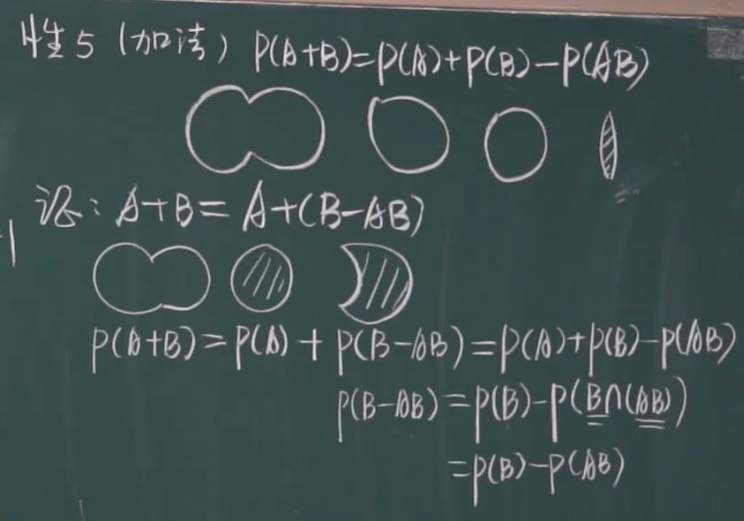 性5（加法）P(A+B)=P(A)+P(B)-P(AB)
证：A+B=A+(B-AB)
P(A+B)=P(A)+P(B-AB)=P(A)+P(B)-P(AB)
P(B-AB)=P(B)-P(B∩(AB))
=P(B)-P(AB)